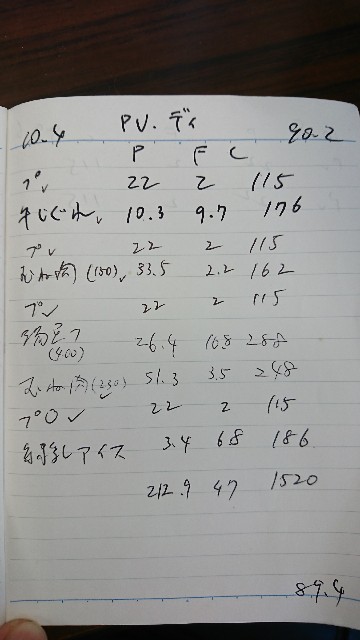 10.4 PV.デイ 90.2
P F C
プレ 22 2 115
牛しぐれ 10.3 9.7 176
プレ 22 2 115
むね肉(150) 33.5 2.2 162
プレ 22 2 115
(400) 26.4 16.8 288
むね肉(230) 51.3 3.5 248
プロ✓ 22 2 115
アイス 3.4 6.8 186
212.9 47 1520
89.4